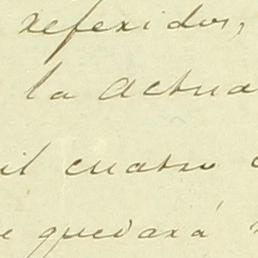 referidos,
la actua
il cuatro
e quedará